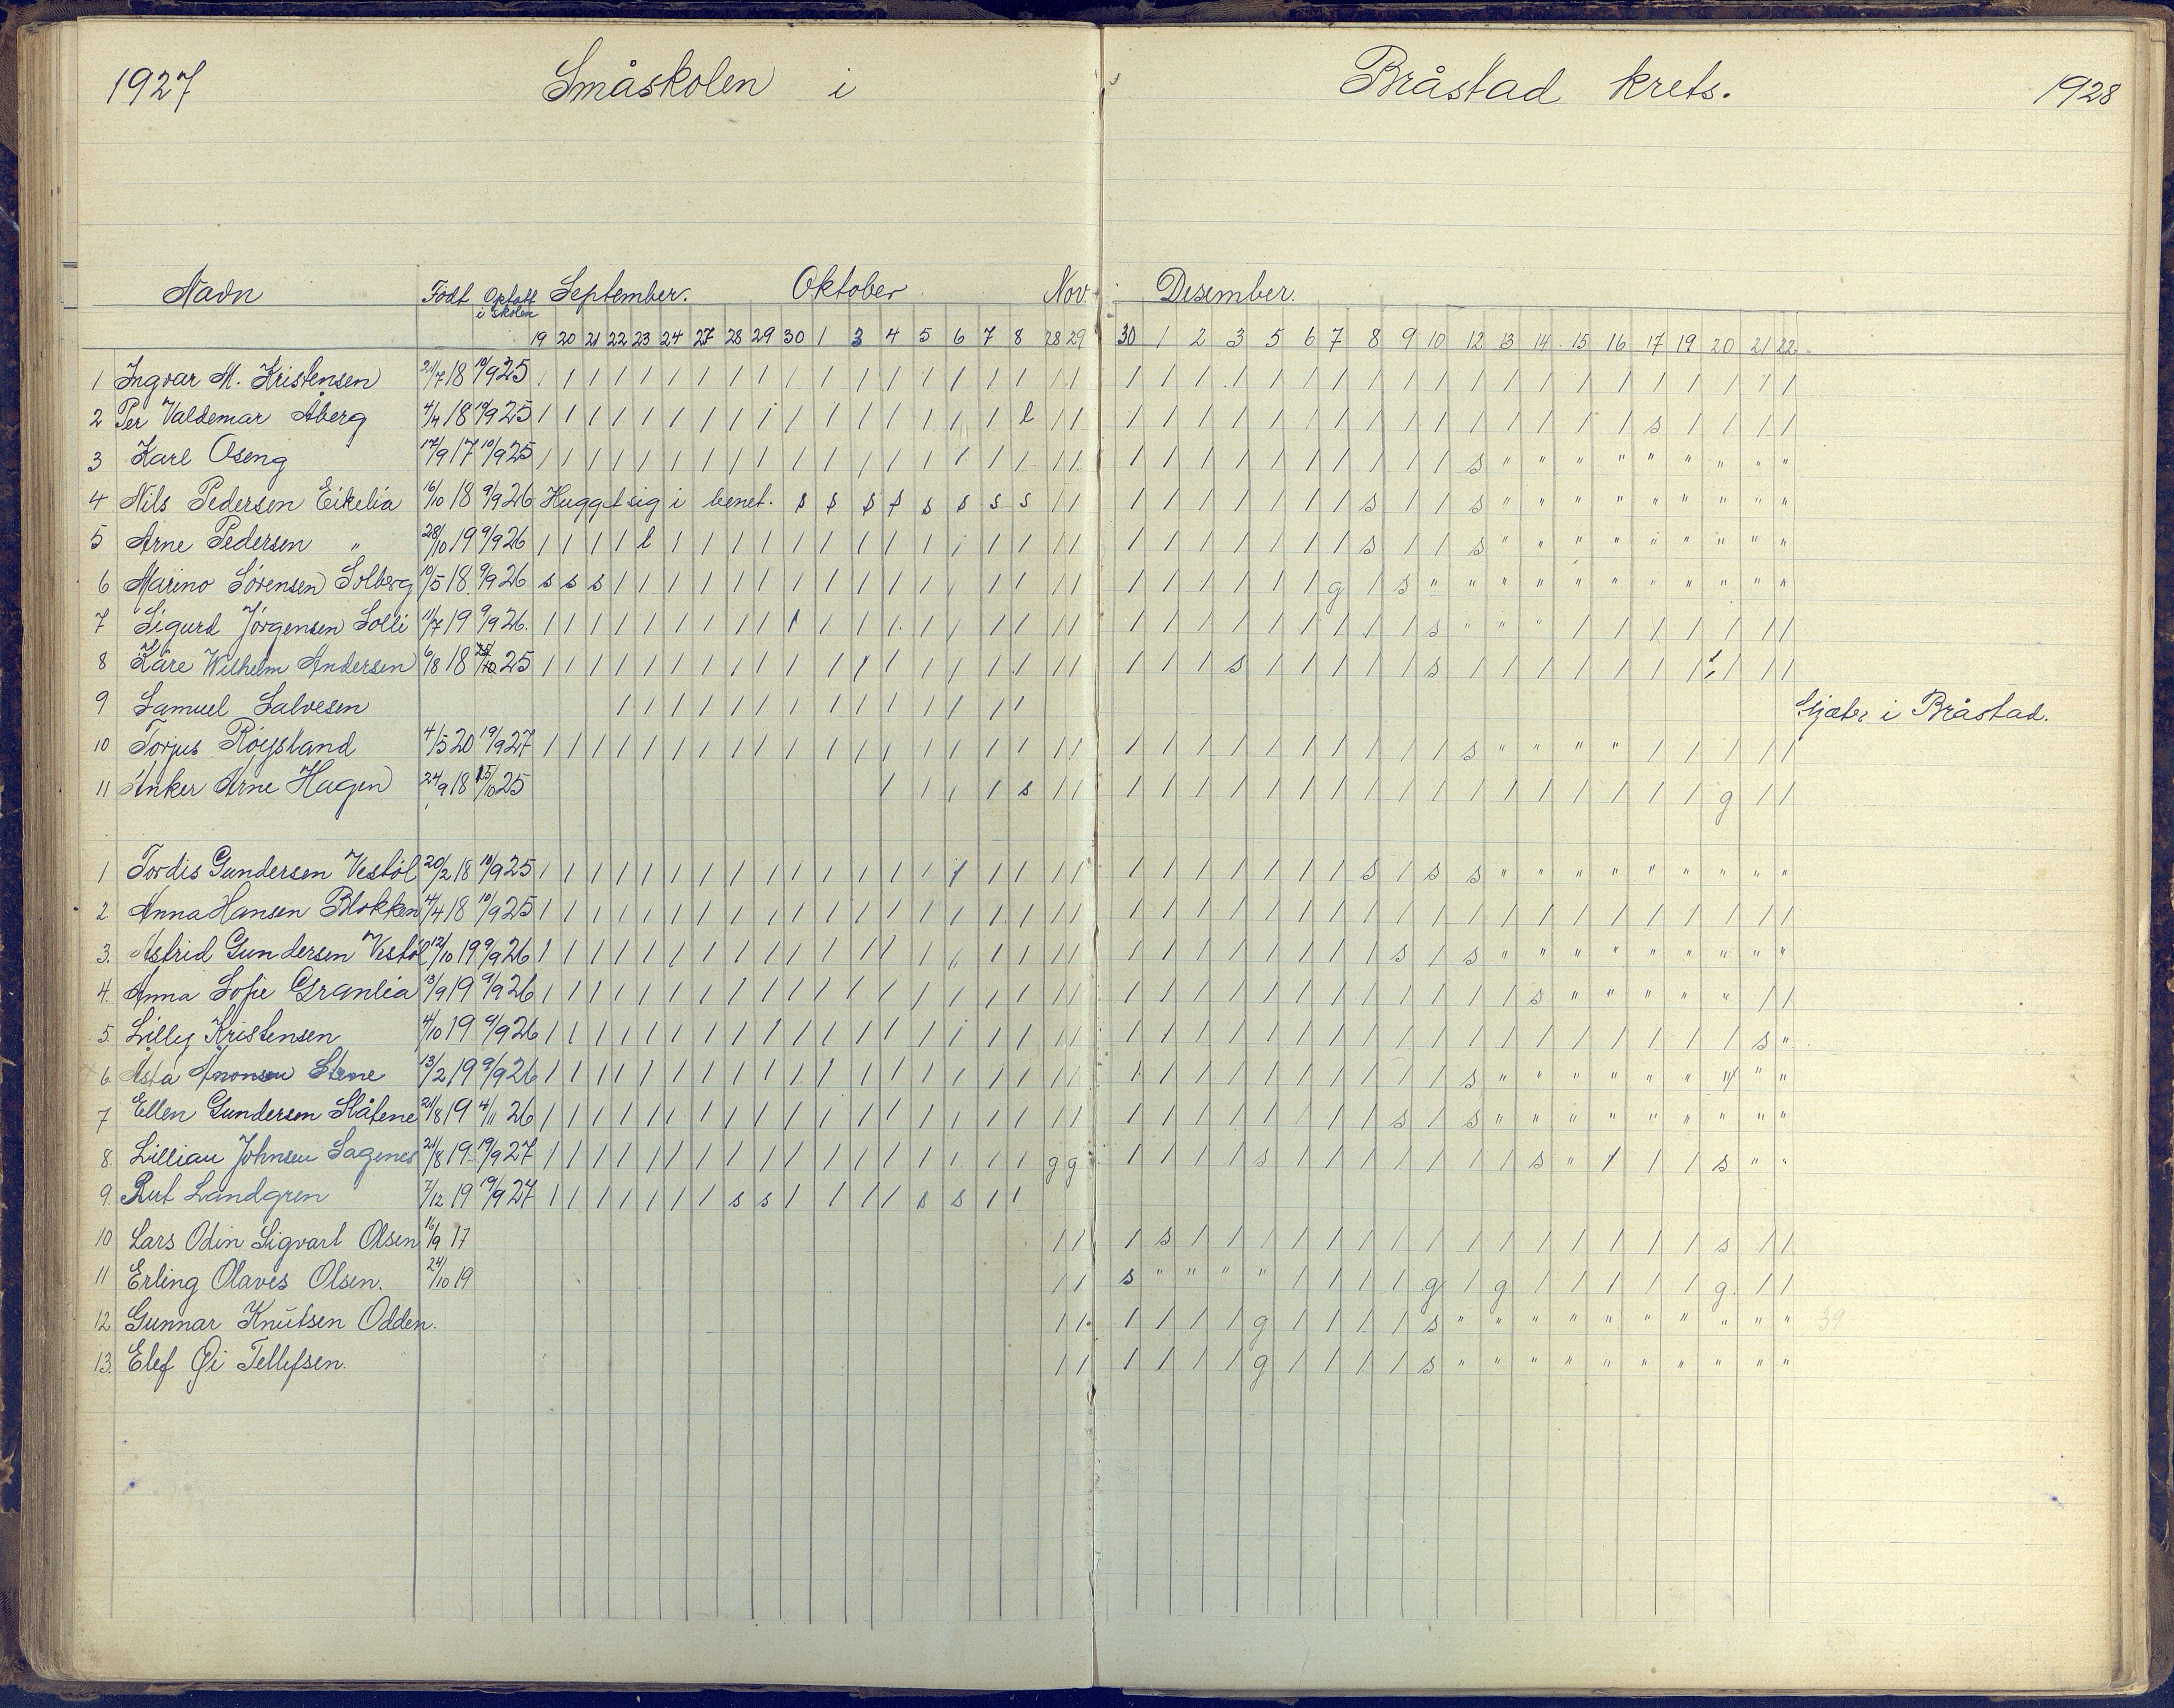 1927 Småskolen i Bråstad krets. 1928
Navn Født Optatt i skolen September. Oktober Nov. Desember.
19 20 21 22 23 24 27 28 29 30 1 3 4 5 6 7 8 28 29 30 1 2 3 5 6 7 8 9 10 12 13 14 15 16 17 19 20 21 22
1 Ingvar M. Kristensen 21/7 18 10/9 25 / / / / / / / / / / / / / / / / / / / / / / / / / / / / / / / / / / / / / / /
2 Per Valdemar Åberg 4/4 18 10/9 25 / / / / / / / / / / / / / / / / l / / / / / / / / / / / / / / / / / s / / / /
3 Karl Oseng 17/9 17 10/9 25 / / / / / / / / / / / / / / / / / / / / / / / / / / / / / s " " " " " " " " "
4 Nils Pedersen Eikelia 16/10 18 9/9 26 Hugget sig i benet. s s s s s s s s / / / / / / / / / s / / s " " " " " " " " "
5 Arne Pedersen " 28/10 19 9/9 26 / / / / l / / / / / / / / / / / / / / / / / / / / / s / / s " " " " " " " " "
6 Marino Sørensen Solberg 10/5 18 9/9 26 s s s / / / / / / / / / / / / / / / / / / / / / / g / s " " " " " " " " " " "
7 Sigurd Jörgensen Solli 11/7 19 9/9 26. / / / / / / / / / / / / / / / / / / / / / / / / / / / / s " " " / / / / / / /
8 Kåre Wilhelm Andersen 6/8 18 25/10 25 / / / / / / / / / / / / / / / / / / / / / / s / / / / / s / / / / / / / / / /
9 Samuel Salvesen / / / / / / / / / / / / / / Skjæter i Bråstad.
10 Torjus Röysland 4/5 20 19/9 27 / / / / / / / / / / / / / / / / / / / / / / / / / / / / / s " " " " / / / / /
11 Anker Arne Hagen 24/9 18 15/10 25 / / / / s / / / / / / / / / / / / / / / / / / / g / /
1 Tordis Gundersen Vestöl 20/2 18 10/9 25 / / / / / / / / / / / / / / / / / / / / / / / / / / s / s s " " " " " " " " "
2 Anna Hansen Blokken 4/4 18 10/9 25 / / / / / / / / / / / / / / / / / / / / / / / / / / / / / / / / / / / / / / /
3. Astrid Gundersen Vestöl 12/10 19 9/9 26 / / / / / / / / / / / / / / / / / / / / / / / / / / / s / s " " " " " " " " "
4. Anna Sofie Granlia 13/9 19 9/9 26 / / / / / / / / / / / / / / / / / / / / / / / / / / / / / / / s " " " " " / /
5. Lilly Kristensen 4/10 19 9/9 26 / / / / / / / / / / / / / / / / / / / / / / / / / / / / / / / / / / / / / s "
6. Asta Aronsen Stene 13/2 19 9/9 26 / / / / / / / / / / / / / / / / / / / / / / / / / / / / / s " " " " " " " " "
7 Ellen Gundersen Slåtene 21/8 19 4/11 26 / / / / / / / / / / / / / / / / / / / / / / / / / / / s / s " " " " " " " " "
8. Lillian Johnsen Sagenes 21/8 19 19/9 27 / / / / / / / / / / / / / / / / / g g / / / / s / / / / / / / s " / / / s " "
9. Rut Landgren 7/12 19 19/9 27 / / / / / / / s s / / / / s s / /
10 Lars Odin Sigvart Olsen 16/9 17 / / / s / / / / / / / / / / / / / / / / s / /
11 Erling Olaves Olsen. 24/10 19 / / s " " " " / / / / g / g / / / / / g. / /
12 Gunnar Knutsen Odden. / / / / / / g / / / / s " " " " " " " " " " 39
13. Elef Øi Tellefsen. / / / / / / g / / / / s " " " " " " " " " "